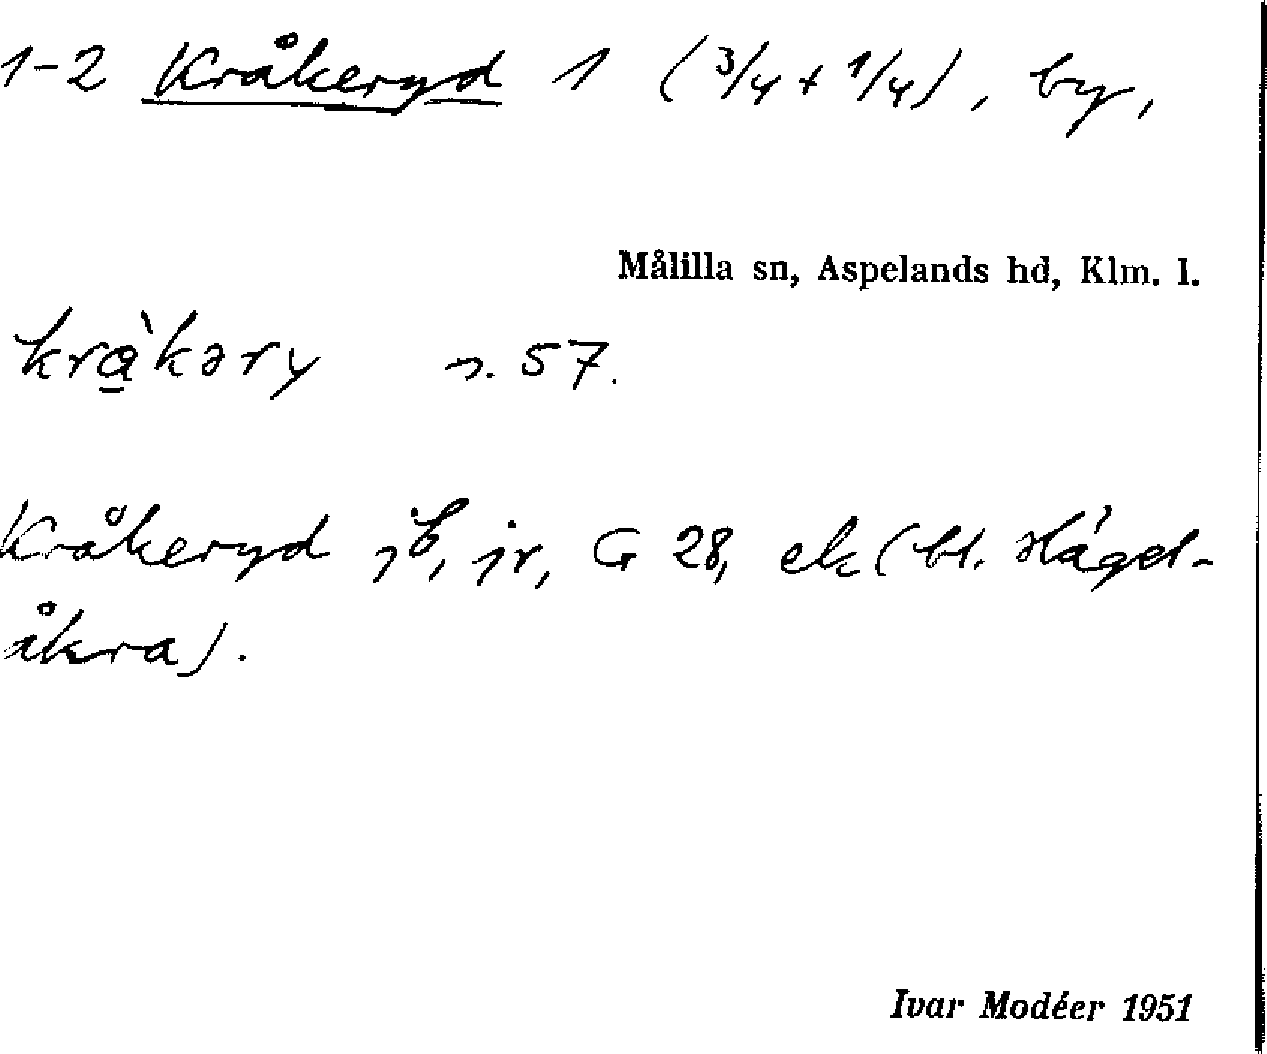 1-2 Kråkeryd 1 (3/4 + 1/4), by,
Målilla sn, Aspelands hd, Klm. l.
krա̀kəry s. 57.
Kråkeryd jb, jr, G 28, ek (bl. Hagel-
åkra).
Ivar Modéer 1951